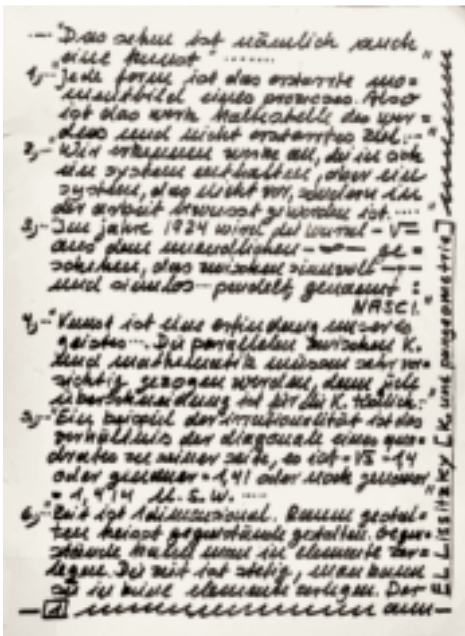 --- "Das sehen ist nämlich auch
eine Kunst" .......
1,- "Jede form ist das erstarrte mo=
mentbild eines prozesses. Also
ist das werk haltestelle des wer=
dens und nicht erstarrtes ziel...."
2,- "Wir erkennen werke an, die in sich
ein system enthalten, aber ein
system, das nicht vor, sondern in
der arbeit bewusst geworden ist. ....
3,- "Im jahre 1924 wird die wurzel - √-
aus dem unendlichen - ∞ - ge=
zwischen sinnvoll - + -
und sinnlos - - pendelt, genannt:
NASCI."
4,- "Kunst ist eine erfindung unseres
geistes .... Die parallelen zwischen K.
und mathematik müssen sehr vor=
sichtig gezogen werden, denn jede
überschneidung ist für die K. tödlich."
5,- "Ein beispiel der irrationalität ist das
verhältnis der diagonale eines qua=
drates zu seiner seite, es ist = √2 = 1,4
oder genauer = 1,41 oder noch genauer
= 1,414 U.S.W. ....
6,- Zeit ist 1dimensional. Raum gestal=
ten heisst gegenstände gestalten. Gegen
stände kann man in elemente zer=
legen. Die zeit ist stetig, man kann
sie in keine elemente zerlegen. Der
1
EL Lissitzky [K. und pangeometrie]